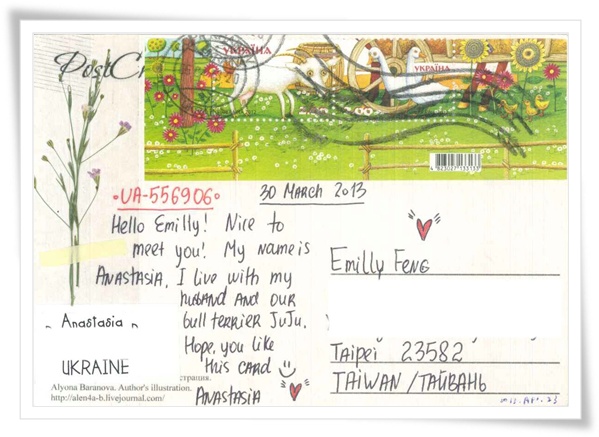 PostC
УКРАЇНА
УКРАЇНА
4 823027 133153
•UA-556906•
30 March 2013
Hello Emilly! Nice to
meet you! My name is
Anastasia. I live with my
husband and our
bull terrier JuJu.
Hope, you like
this card
Anastasia
Emilly Feng
Taipei 23582
TAIWAN/ТАЙВАНЬ
~ Anastasia ~
UKRAINE
страция.
Alyona Baranova. Author's illustration.
http://alen4a-b.livejournal.com/